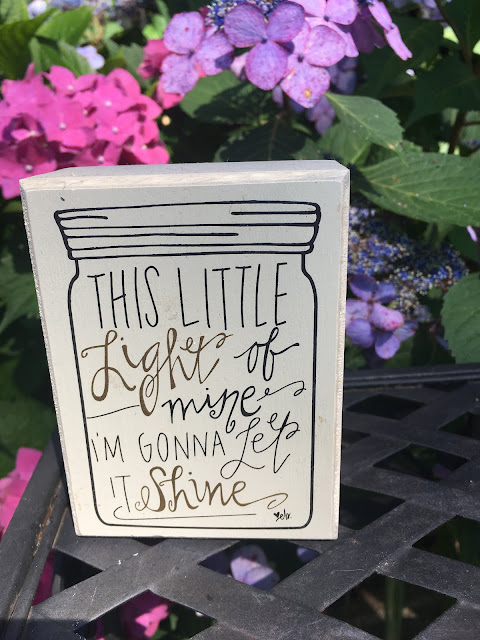 THIS LITTLE
Light of
mine
I'M GONNA Let
IT Shine